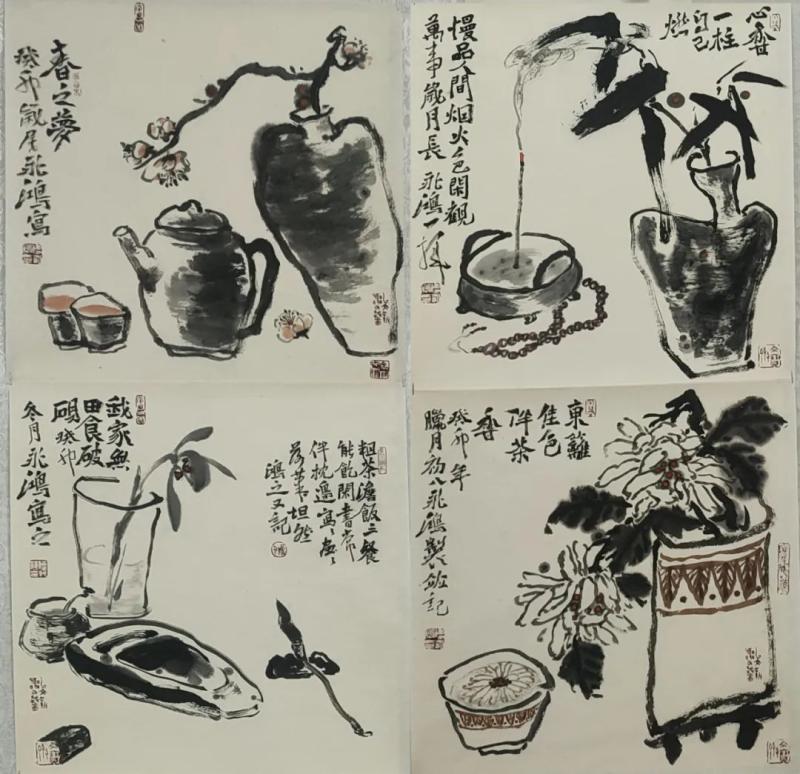 春之夢
癸卯歲尾永鴻寫
心香
一柱
自己
燃
慢品人間烟火色閑觀
萬事歲月長永鴻一揮
我家無
田食破
硯癸卯
冬月永鴻寫之
粗茶澹飯三餐
能飽閑書常
伴枕邊寫寫畫畫
坦然
鴻之又記
東籬
佳色
伴茶
香
癸卯年
臘月初八永鴻製並記